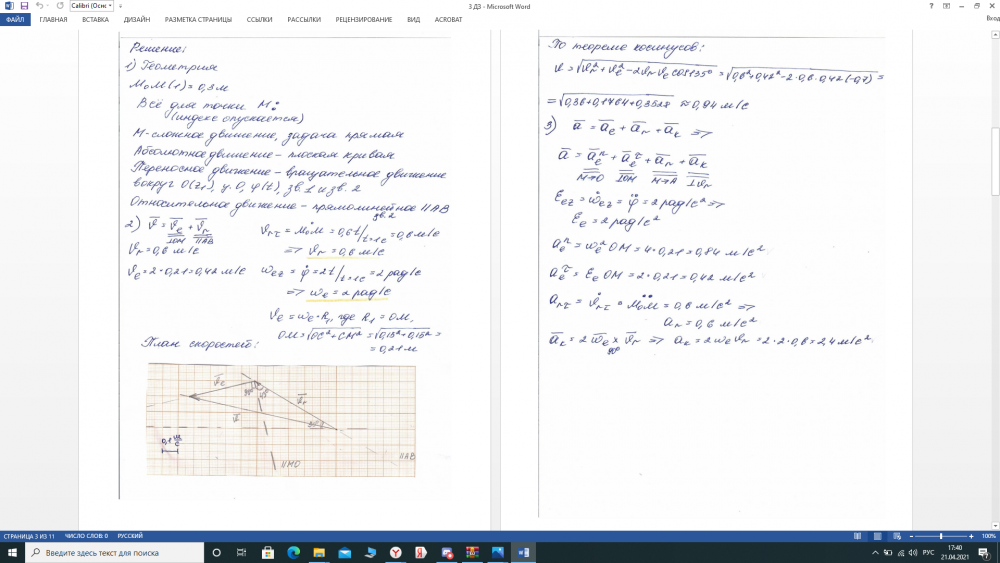 Calibri (Осно
3 ДЗ - Microsoft Word
Вход
ФАЙЛ ГЛАВНАЯ ВСТАВКА ДИЗАЙН РАЗМЕТКА СТРАНИЦЫ ССЫЛКИ РАССЫЛКИ РЕЦЕНЗИРОВАНИЕ ВИД ACROBAT
Решение:
1) Геометрия
M₀M(1) = 0,3 м
Всё для точки M:
(индекс опускается)
М-сложное движение, задача прямая
Абсолютное движение - плоская кривая
Переносное движение - вращательное движение
вокруг O(z₁), у.О, φ(t), зв.1 и зв. 2
Относительное движение - прямолинейное ||AB
зв.2
2) v̅ = v̅e + v̅r
⊥OM ||AB
vr = 0,6 м/с
ve = 2·0,21 = 0,42 м/с
vrτ = M₀M = 0,6t/t=1c = 0,6 м/с
=> vr = 0,6 м/с
ωez = φ̇ = 2t/t=1c = 2 рад/с
=> ωe = 2 рад/с
ve = ωe·R₁, где R₁ = OM,
OM = √OC²+CM² = √0,15²+0,15² =
= 0,21 м
План скоростей:
v̅e
v̅r
v̅
0,1 м/с
||MO
||AB
По теореме косинусов:
v = √vr²+ve²-2vr ve cos135° = √0,6²+0,42²-2·0,6·0,42(-0,7) =
= √0,36+0,1764+0,3528 ≈ 0,94 м/с
3) a̅ = a̅e + a̅r + a̅k =>
a̅ = a̅eⁿ + a̅eτ + a̅r + a̅k
M→O ⊥OM M→A ⊥vr
εez = ω̇ez = φ̈ = 2 рад/с² =>
εe = 2 рад/с²
aeⁿ = ωe² OM = 4·0,21 = 0,84 м/с²
aeτ = εe OM = 2·0,21 = 0,42 м/с²
arτ = v̇rτ = M₀M = 0,6 м/с² =>
ar = 0,6 м/с²
a̅k = 2 ω̅e × v̅r => ak = 2ωe vr = 2·2·0,6 = 2,4 м/с²
90°
СТРАНИЦА 3 ИЗ 11 ЧИСЛО СЛОВ: 0 РУССКИЙ
100%
Введите здесь текст для поиска
РУС
17:40
21.04.2021